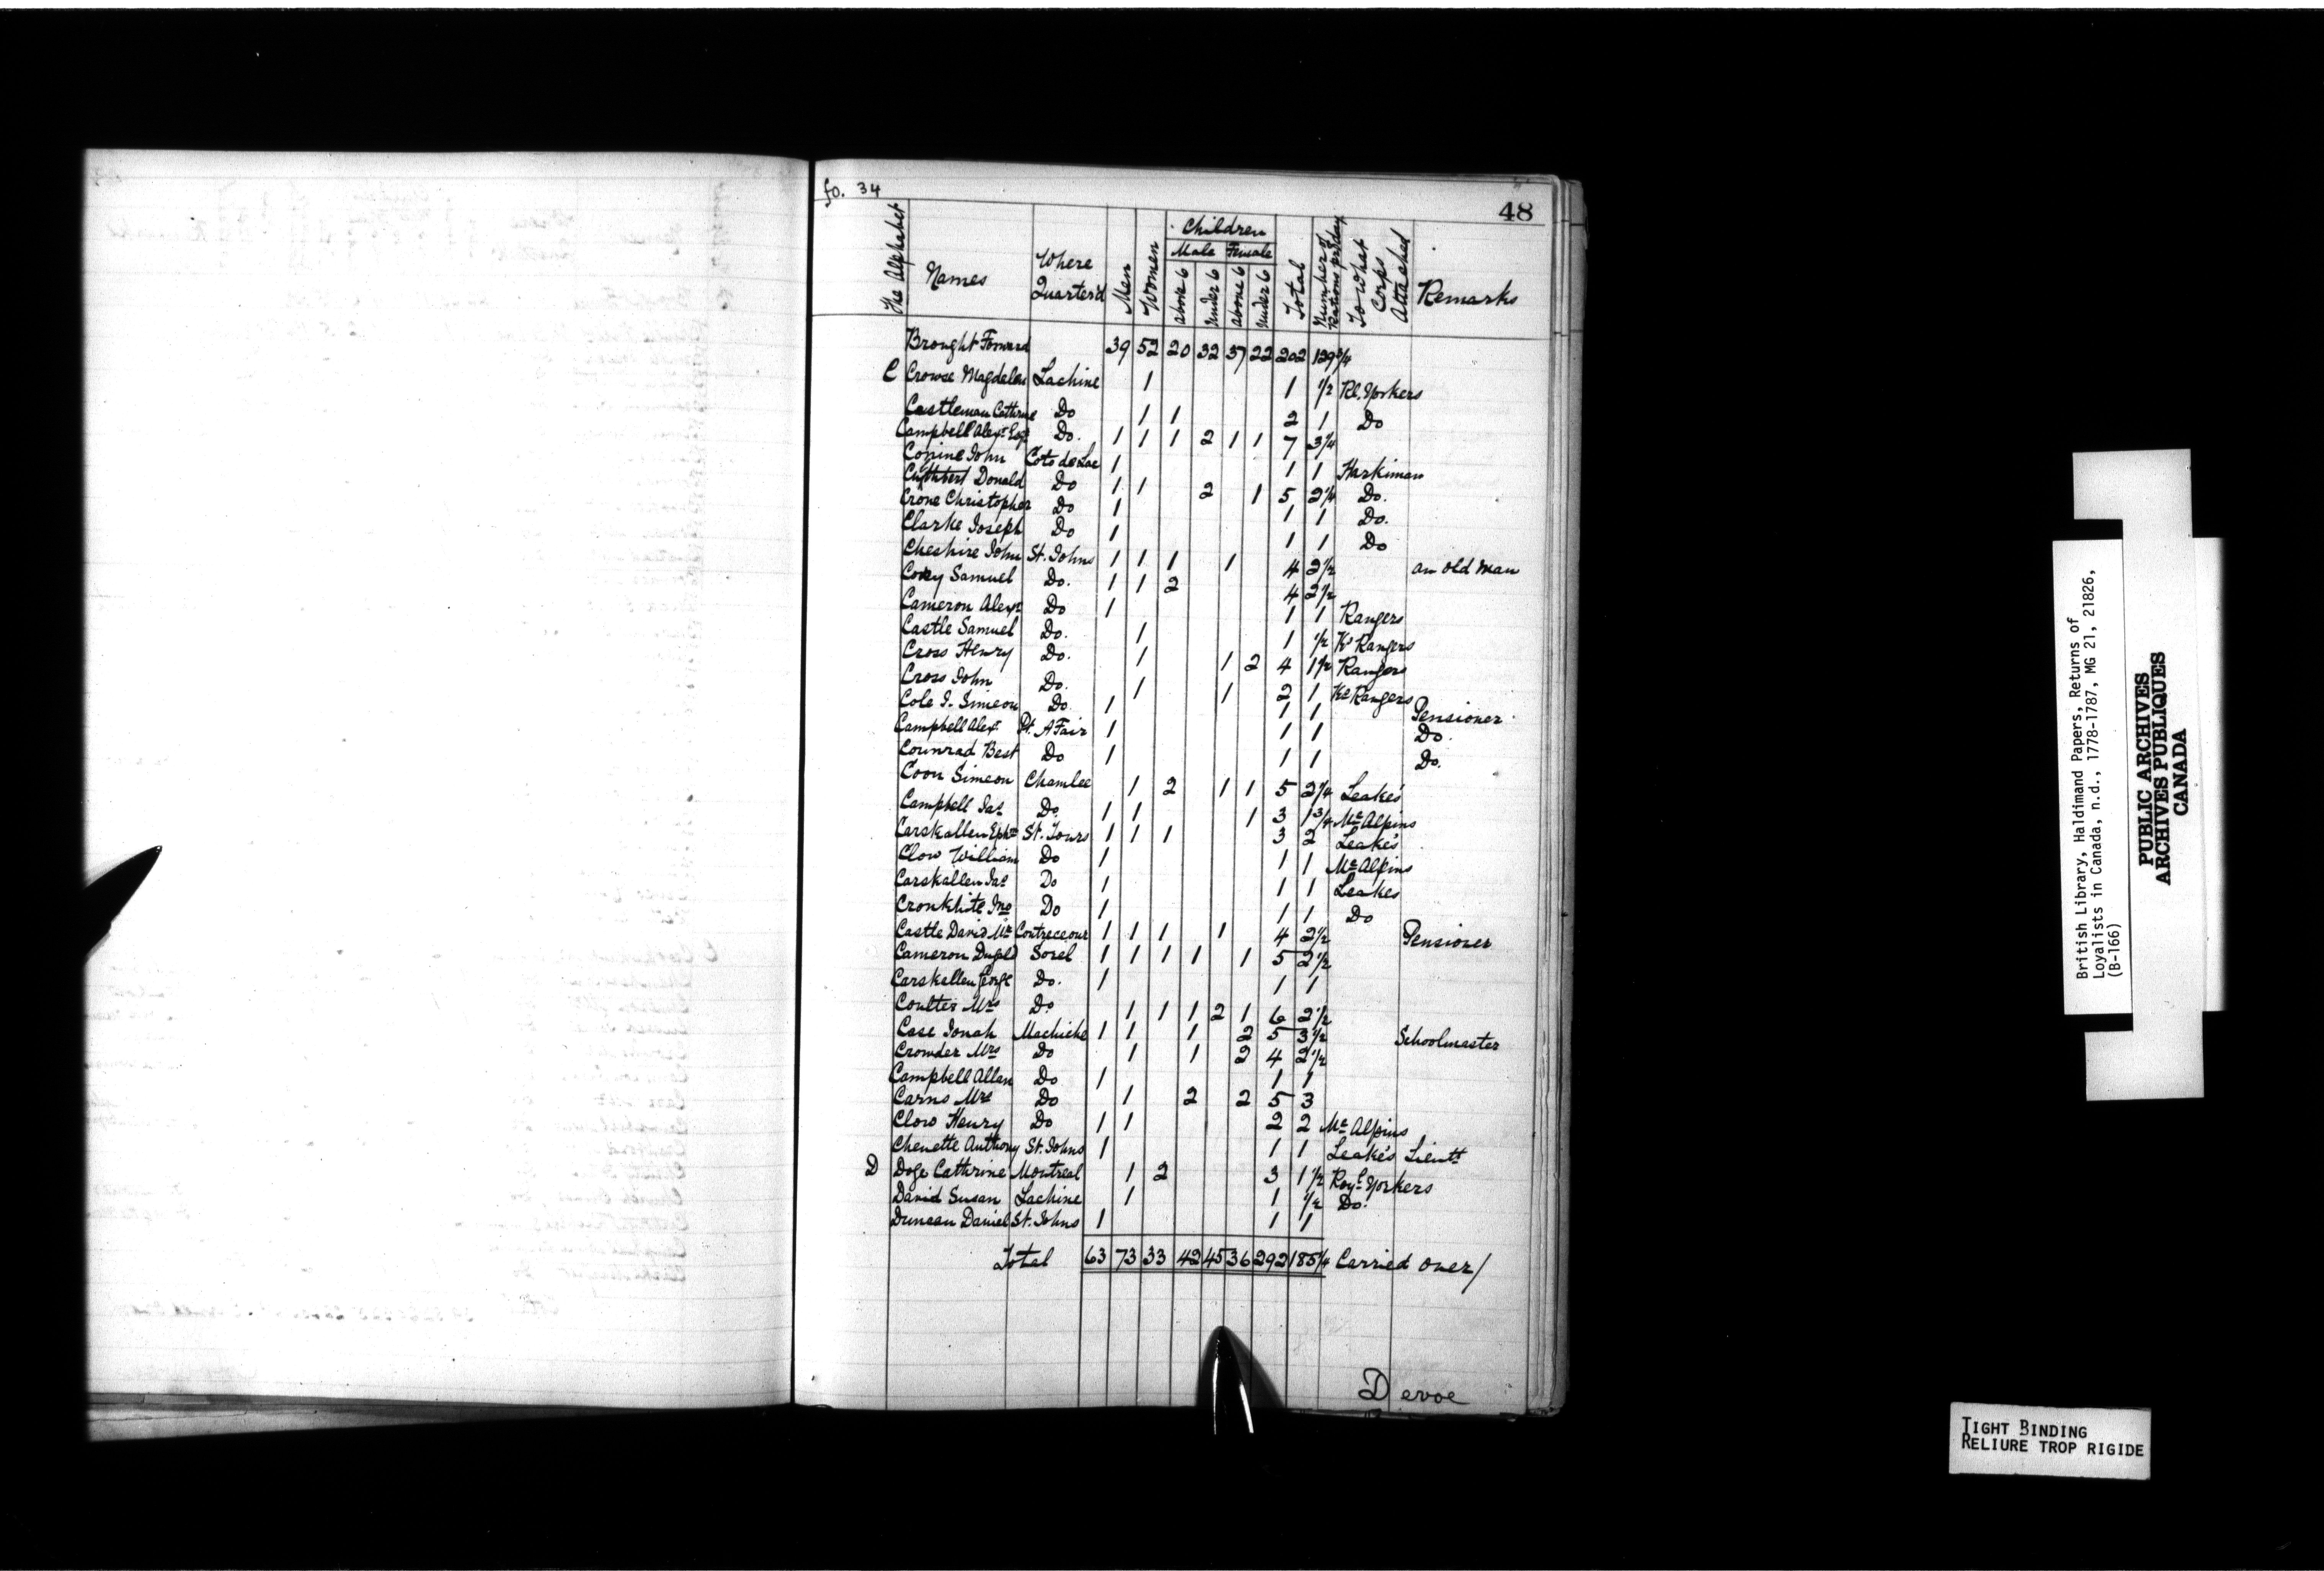 fo. 34
48
The Alphabet Names Where Quarter'd Men Women Children Male above 6 under 6 Female above 6 under 6 Total Number of Rations pr day To What Corps Attached Remarks
Brought Forward 39 52 20 32 37 22 202 129 3/4
C Crowse Magdalen Lachine 1 1 1/2 Rl. Yorkers
Castleman Cathrine Do 1 1 2 1 Do
Campbell Alexr Esqr Do. 1 1 1 2 1 1 7 3 1/4
Conine John Coto de Lac 1 1 1 Harkiman
Cuthbert Donald Do 1 1 2 1 5 2 1/4 Do.
Crone Christopher Do 1 1 1 Do.
Clarke Joseph Do 1 1 1 Do
Cheshire John St. Johns 1 1 1 1 4 2 1/2 an old man
Samuel Do. 1 1 2 4 2 1/2
Cameron Alexr Do 1 1 1 Rangers
Castle Samuel Do. 1 1 1/2 Ks Rangers
Cross Henry Do. 1 1 2 4 1 1/2 Rangers
Cross John Do. 1 1 2 1 Ks Rangers
Cole I. Simeon Do. 1 1 1 Pensioner
Campbell Alexr Pt. A Fair 1 1 1 Do.
Counrad Best Do 1 1 1 Do.
Coon Simeon Chamlee 1 2 1 1 5 2 1/4 Leake's
Campbell Jas Do. 1 1 1 3 1 3/4 Mc Alpins
Carskallen Ephm St. Tours 1 1 1 3 2 Leake's
Clow William Do 1 1 1 Mc Alpins
Carskallen Jas Do 1 1 1 Leakes
Cronkhite Jno Do 1 1 1 Do
Castle David Mr Contrecoeur 1 1 1 1 4 2 1/2 Pensioner
Cameron Dugald Sorel 1 1 1 1 1 5 2 1/2
Carskallen George Do. 1 1 1
Coulter Mrs Do. 1 1 1 2 1 6 2 1/2
Case Jonah Machiche 1 1 1 2 5 3 1/2 Schoolmaster
Crowder Mrs Do 1 1 2 4 2 1/2
Campbell Allan Do 1 1 1
Carns Mrs Do 1 2 2 5 3
Clow Henry Do 1 1 2 2 Mc Alpins
Chenette Anthony St. Johns 1 1 1 Leake's Lieutt
D Doge Cathrine Montreal 1 2 3 1 1/2 Royl Yorkers
David Susan Lachine 1 1 1/2 Do.
Duncan Daniel St. Johns 1 1 1
Total 63 73 33 42 45 36 292 185 1/4 Carried over/
Devoe
British Library, Haldimand Papers, Returns of
Loyalists in Canada, n.d., 1778-1787, MG 21, 21826,
(B-166)
PUBLIC ARCHIVES
ARCHIVES PUBLIQUES
CANADA
TIGHT BINDING
RELIURE TROP RIGIDE